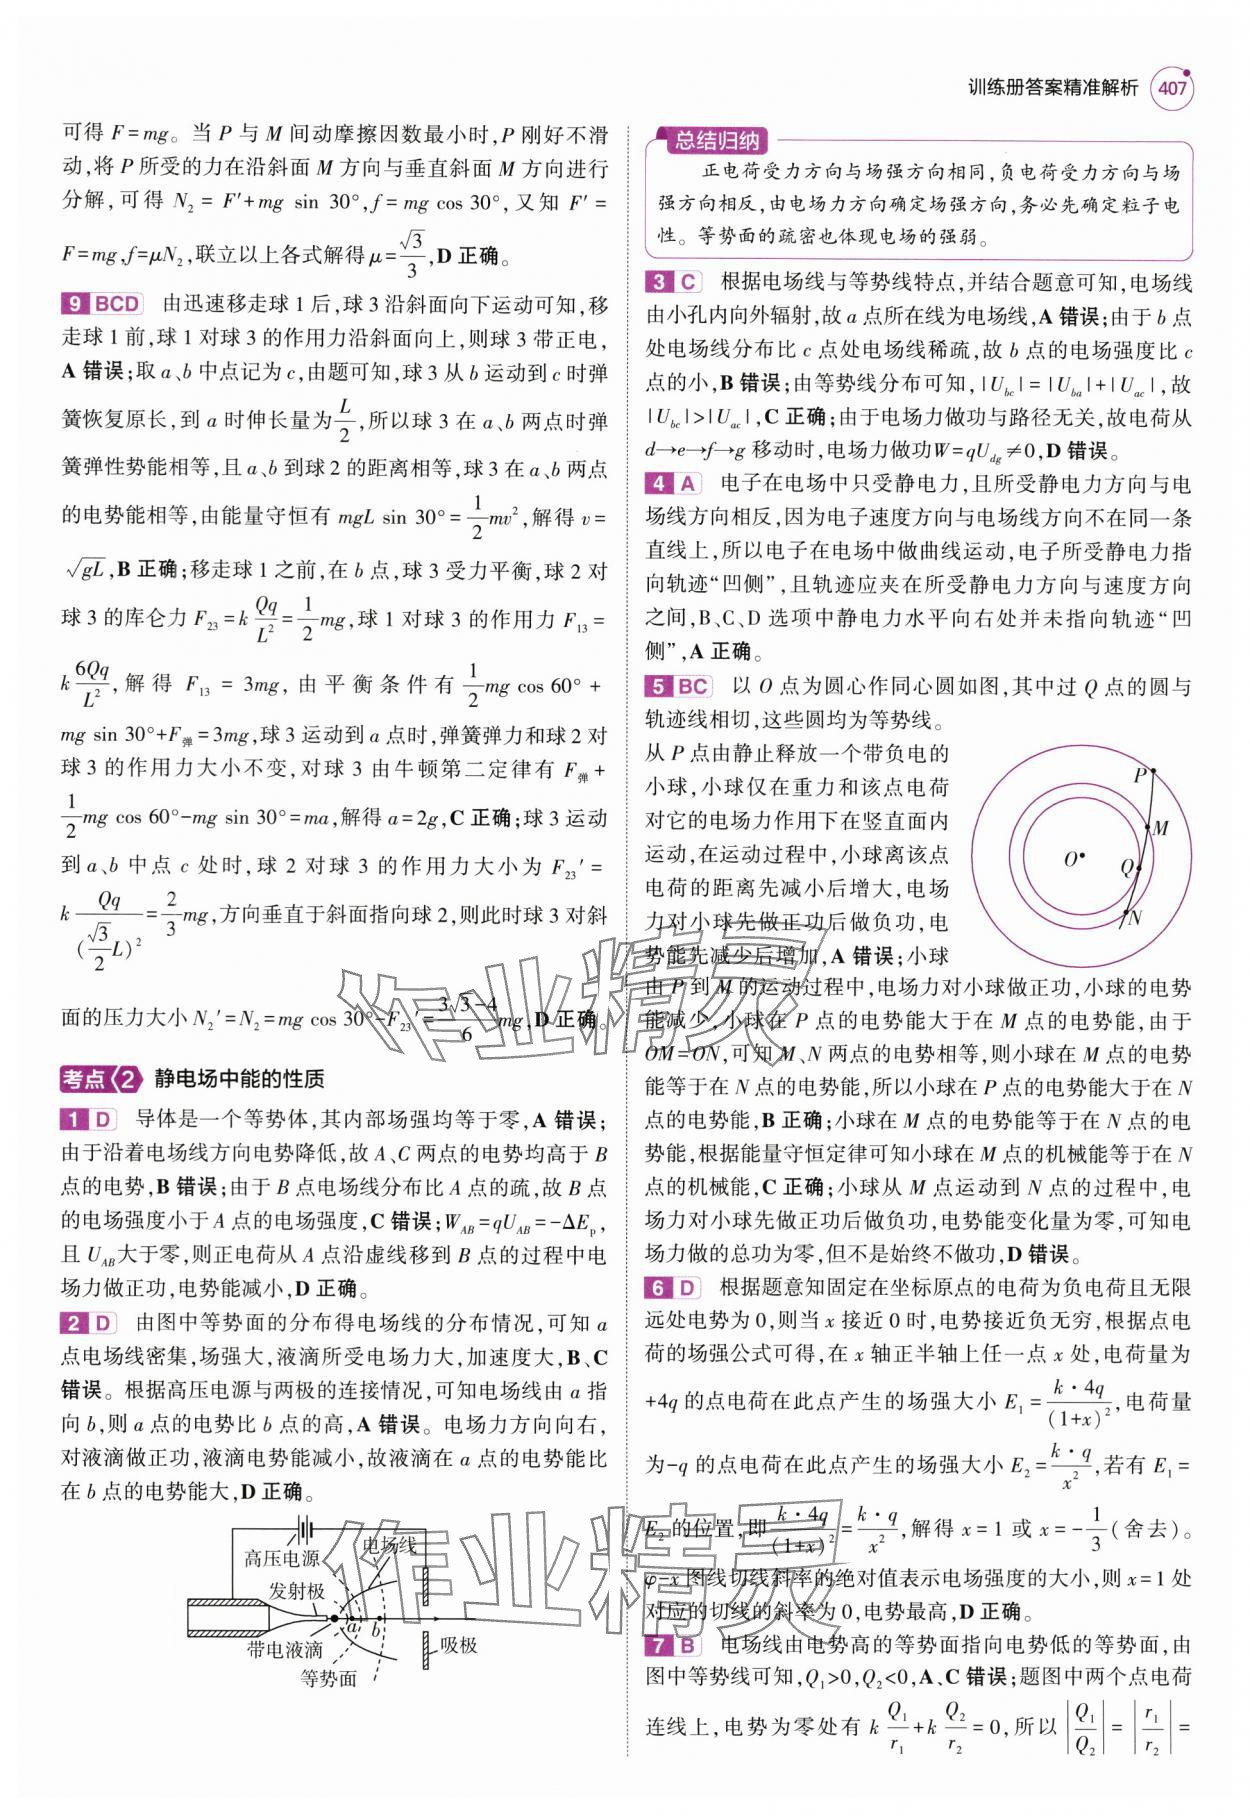 训练册答案精准解析 407
可得 F=mg。当 P 与 M 间动摩擦因数最小时,P 刚好不滑
动,将 P 所受的力在沿斜面 M 方向与垂直斜面 M 方向进行
分解,可得 N₂ = F′+mg sin 30°,f = mg cos 30°,又知 F′ =
F=mg,f=μN₂,联立以上各式解得 μ=√3/3,D 正确。
9 BCD 由迅速移走球 1 后,球 3 沿斜面向下运动可知,移
走球 1 前,球 1 对球 3 的作用力沿斜面向上,则球 3 带正电,
A 错误;取 a、b 中点记为 c,由题可知,球 3 从 b 运动到 c 时弹
簧恢复原长,到 a 时伸长量为 L/2,所以球 3 在 a、b 两点时弹
簧弹性势能相等,且 a、b 到球 2 的距离相等,球 3 在 a、b 两点
的电势能相等,由能量守恒有 mgL sin 30°=1/2 mv²,解得 v=
√gL,B 正确;移走球 1 之前,在 b 点,球 3 受力平衡,球 2 对
球 3 的库仑力 F₂₃=k Qq/L²=1/2 mg,球 1 对球 3 的作用力 F₁₃=
k 6Qq/L²,解得 F₁₃ = 3mg,由平衡条件有 1/2 mg cos 60° +
mg sin 30°+F弹=3mg,球 3 运动到 a 点时,弹簧弹力和球 2 对
球 3 的作用力大小不变,对球 3 由牛顿第二定律有 F弹+
1/2 mg cos 60°-mg sin 30°=ma,解得 a=2g,C 正确;球 3 运动
到 a、b 中点 c 处时,球 2 对球 3 的作用力大小为 F₂₃′=
k Qq/(√3/2 L)²=2/3 mg,方向垂直于斜面指向球 2,则此时球 3 对斜
面的压力大小 N₂′=N₂=mg cos 30°-F₂₃′=(3√3-4)/6 mg,D 正确。
考点 2 静电场中能的性质
1 D 导体是一个等势体,其内部场强均等于零,A 错误;
由于沿着电场线方向电势降低,故 A、C 两点的电势均高于 B
点的电势,B 错误;由于 B 点电场线分布比 A 点的疏,故 B 点
的电场强度小于 A 点的电场强度,C 错误;W_AB=qU_AB=-ΔE_p,
且 U_AB大于零,则正电荷从 A 点沿虚线移到 B 点的过程中电
场力做正功,电势能减小,D 正确。
2 D 由图中等势面的分布得电场线的分布情况,可知 a
点电场线密集,场强大,液滴所受电场力大,加速度大,B、C
错误。根据高压电源与两极的连接情况,可知电场线由 a 指
向 b,则 a 点的电势比 b 点的高,A 错误。电场力方向向右,
对液滴做正功,液滴电势能减小,故液滴在 a 点的电势能比
在 b 点的电势能大,D 正确。
高压电源
电场线
发射极
a
b
带电液滴
吸极
等势面
总结归纳
正电荷受力方向与场强方向相同,负电荷受力方向与场
强方向相反,由电场力方向确定场强方向,务必先确定粒子电
性。等势面的疏密也体现电场的强弱。
3 C 根据电场线与等势线特点,并结合题意可知,电场线
由小孔内向外辐射,故 a 点所在线为电场线,A 错误;由于 b 点
处电场线分布比 c 点处电场线稀疏,故 b 点的电场强度比 c
点的小,B 错误;由等势线分布可知,|U_bc|=|U_ba|+|U_ac|,故
|U_bc|>|U_ac|,C 正确;由于电场力做功与路径无关,故电荷从
d→e→f→g 移动时,电场力做功W=qU_dg≠0,D 错误。
4 A 电子在电场中只受静电力,且所受静电力方向与电
场线方向相反,因为电子速度方向与电场线方向不在同一条
直线上,所以电子在电场中做曲线运动,电子所受静电力指
向轨迹“凹侧”,且轨迹应夹在所受静电力方向与速度方向
之间,B、C、D 选项中静电力水平向右处并未指向轨迹“凹
侧”,A 正确。
5 BC 以 O 点为圆心作同心圆如图,其中过 Q 点的圆与
轨迹线相切,这些圆均为等势线。
从 P 点由静止释放一个带负电的
小球,小球仅在重力和该点电荷
对它的电场力作用下在竖直面内
运动,在运动过程中,小球离该点
电荷的距离先减小后增大,电场
力对小球先做正功后做负功,电
势能先减少后增加,A 错误;小球
P
M
O
Q
N
由 P 到 M 的运动过程中,电场力对小球做正功,小球的电势
能减少,小球在 P 点的电势能大于在 M 点的电势能,由于
OM=ON,可知 M、N 两点的电势相等,则小球在 M 点的电势
能等于在 N 点的电势能,所以小球在 P 点的电势能大于在 N
点的电势能,B 正确;小球在 M 点的电势能等于在 N 点的电
势能,根据能量守恒定律可知小球在 M 点的机械能等于在 N
点的机械能,C 正确;小球从 M 点运动到 N 点的过程中,电
场力对小球先做正功后做负功,电势能变化量为零,可知电
场力做的总功为零,但不是始终不做功,D 错误。
6 D 根据题意知固定在坐标原点的电荷为负电荷且无限
远处电势为 0,则当 x 接近 0 时,电势接近负无穷,根据点电
荷的场强公式可得,在 x 轴正半轴上任一点 x 处,电荷量为
+4q 的点电荷在此点产生的场强大小 E₁=k·4q/(1+x)²,电荷量
为-q 的点电荷在此点产生的场强大小 E₂=k·q/x²,若有 E₁=
E₂ 的位置,即 k·4q/(1+x)²=k·q/x²,解得 x=1 或 x=-1/3(舍去)。
φ-x 图线切线斜率的绝对值表示电场强度的大小,则 x=1 处
对应的切线的斜率为 0,电势最高,D 正确。
7 B 电场线由电势高的等势面指向电势低的等势面,由
图中等势线可知,Q₁>0,Q₂<0,A、C 错误;题图中两个点电荷
连线上,电势为零处有 k Q₁/r₁+k Q₂/r₂=0,所以 |Q₁/Q₂|=|r₁/r₂|=
作业精灵
作业精灵